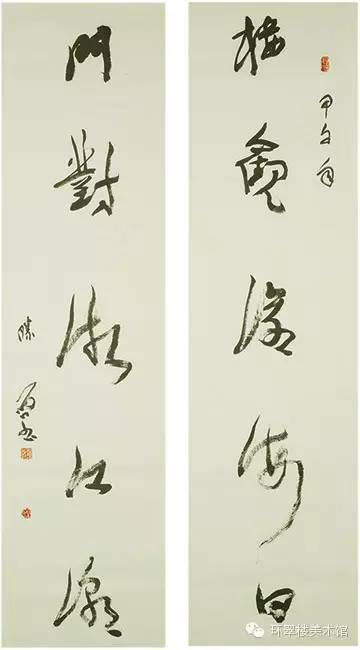 樓觀滄海日
甲午年
門對浙江潮
环翠楼美术馆